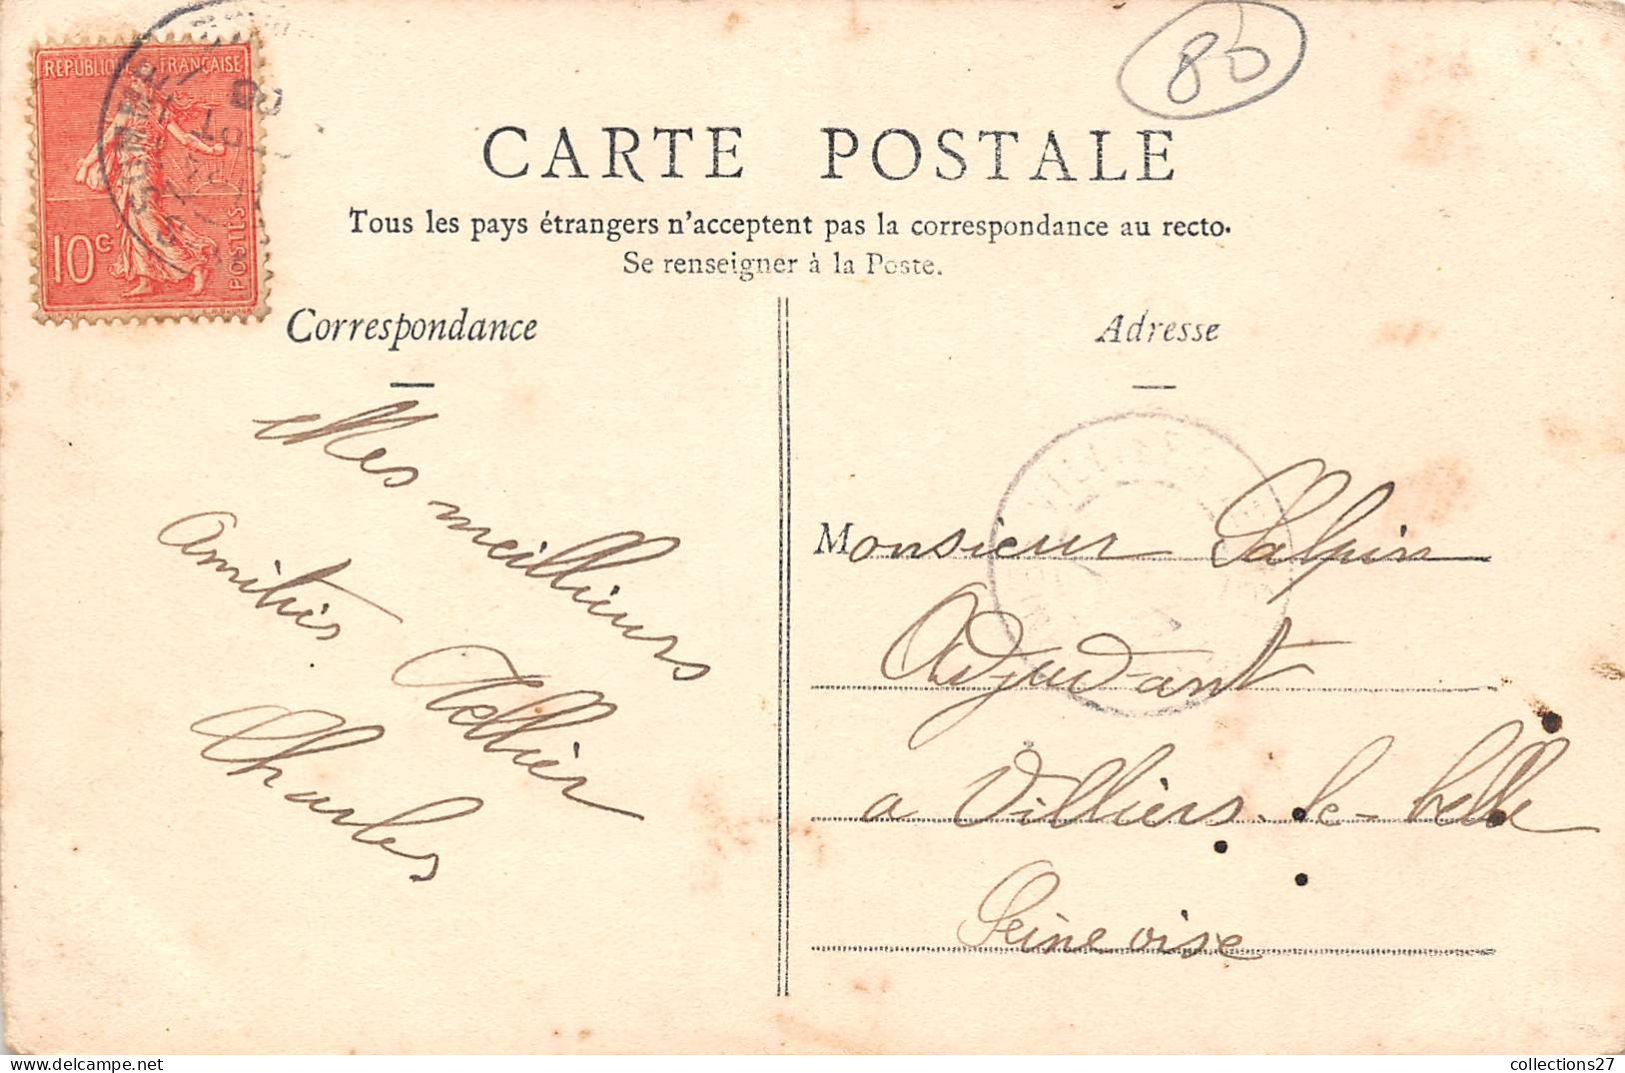 80
REPUBLIQUE FRANÇAISE
10c
POSTES
SOMME
CARTE POSTALE
Tous les pays étrangers n'acceptent pas la correspondance au recto.
Se renseigner à la Poste.
Correspondance
Mes meilliurs
Amitiés
Tellier
Charles
Adresse
Monsieur Salpin
Adjudant
a Villiers-le-belle
Seine oise
collections27